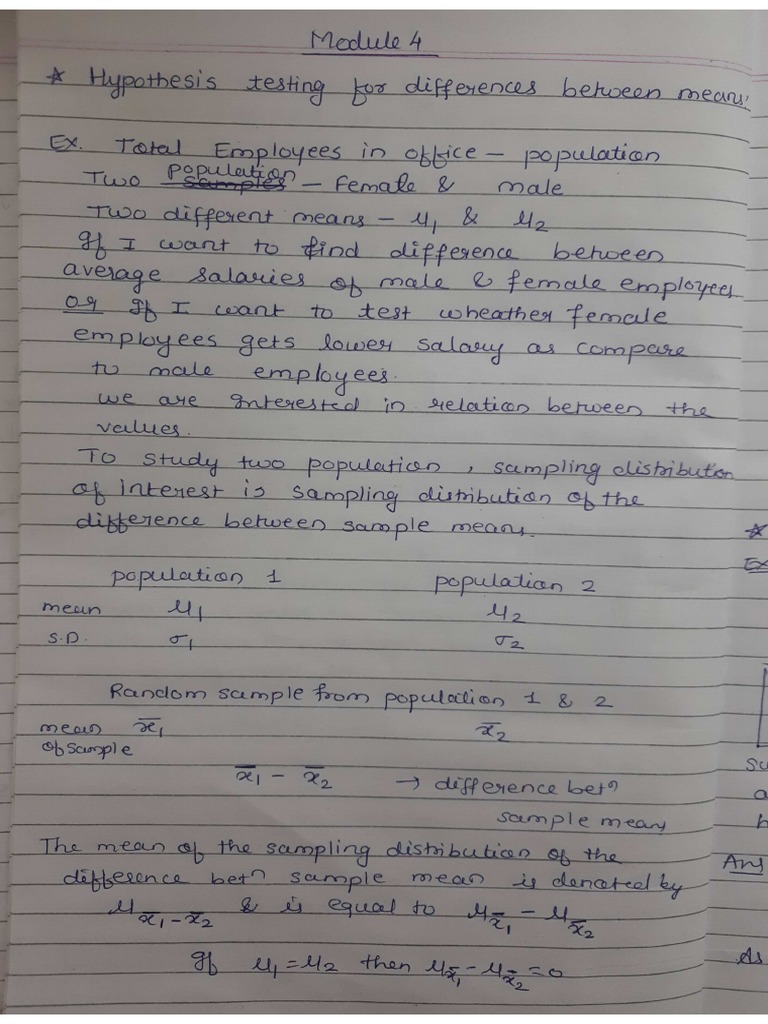 Module 4
* Hypothesis testing for differences between means:
Ex. Total Employees in office – population
Two population samples – Female & male
Two different means – μ₁ & μ₂
If I want to find difference between
average salaries of male & female employees
or If I want to test wheather female
employees gets lower salary as compare
to male employees.
we are interested in relation between the
values.
To study two population, sampling distribution
of interest is sampling distribution of the
difference between sample means.
population 1 population 2
mean μ₁ μ₂
S.D. σ₁ σ₂
Random sample from population 1 & 2
mean of sample x̄₁ x̄₂
x̄₁ – x̄₂ → difference betⁿ
sample means
The mean of the sampling distribution of the
difference betⁿ sample mean is denoted by
μ_x̄₁–x̄₂ & is equal to μ_x̄₁ – μ_x̄₂
If μ₁ = μ₂ then μ_x̄₁ – μ_x̄₂ = 0
*
Ex
Ans
As